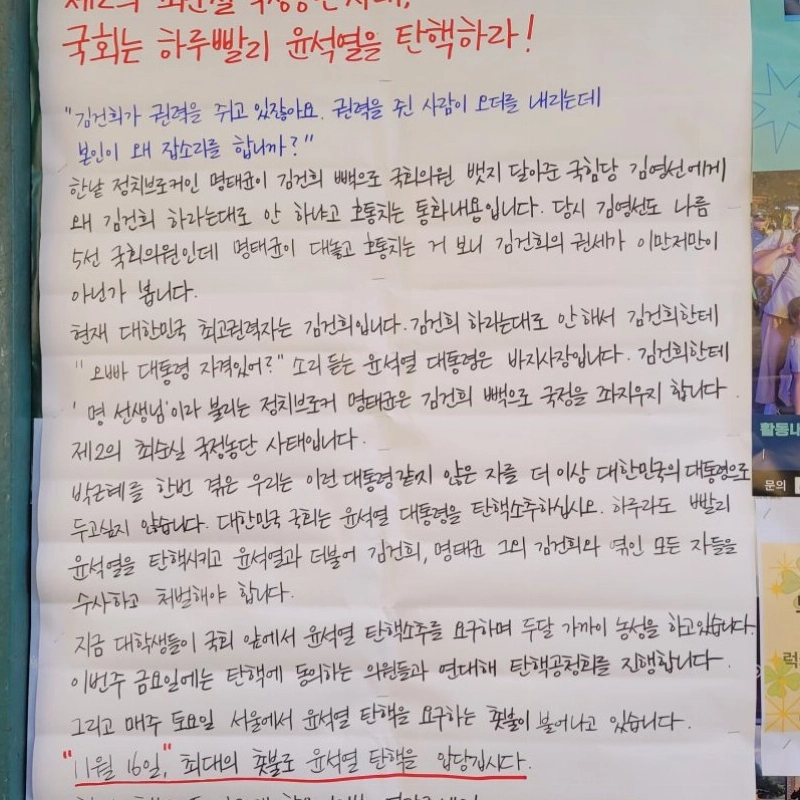 제2의 최순실 국정농단사태,
국회는 하루빨리 윤석열을 탄핵하라!
"김건희가 권력을 쥐고 있잖아요. 권력을 쥔 사람이 오더를 내리는데
본인이 왜 잡소리를 합니까?"
한낱 정치브로커인 명태균이 김건희 빽으로 국회의원 뱃지 달아준 국힘당 김영선에게
왜 김건희 하라는대로 안 하냐고 호통치는 통화내용입니다. 당시 김영선도 나름
5선 국회의원인데 명태균이 대놓고 호통치는 거 보니 김건희의 권세가 이만저만이
아닌가 봅니다.
현재 대한민국 최고권력자는 김건희입니다. 김건희 하라는대로 안해서 김건희한테
"오빠 대통령 자격있어?" 소리 듣는 윤석열 대통령은 바지사장입니다. 김건희한테
'명 선생님'이라 불리는 정치브로커 명태균은 김건희 빽으로 국정을 좌지우지 합니다.
제2의 최순실 국정농단 사태입니다.
박근혜를 한번 겪은 우리는 이런 대통령같지 않은 자를 더 이상 대한민국의 대통령으로
두고싶지 않습니다. 대한민국 국회는 윤석열 대통령을 탄핵소추하십시오. 하루라도 빨리
윤석열을 탄핵시키고 윤석열과 더불어 김건희, 명태균 그외 김건희와 엮인 모든 자들을
수사하고 처벌해야 합니다.
지금 대학생들이 국회 앞에서 윤석열 탄핵소추를 요구하며 두달 가까이 농성을 하고있습니다.
이번주 금요일에는 탄핵에 동의하는 의원들과 연대해 탄핵공청회를 진행합니다.
그리고 매주 토요일 서울에서 윤석열 탄핵을 요구하는 촛불이 불어나고 있습니다.
"11월 16일", 최대의 촛불로 윤석열 탄핵을 앞당깁시다.
활동내
문의
럭